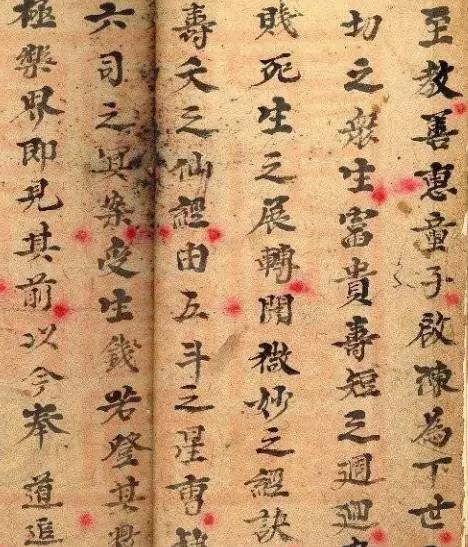 至教善惠童子啟陳為下世
切之眾生富貴壽短之迴迴
賎死生之展轉閞微妙之經訣
壽夭之仙經由五斗之星専
六司之冥案受生錢若登其
極樂界即見其前以今奉道追